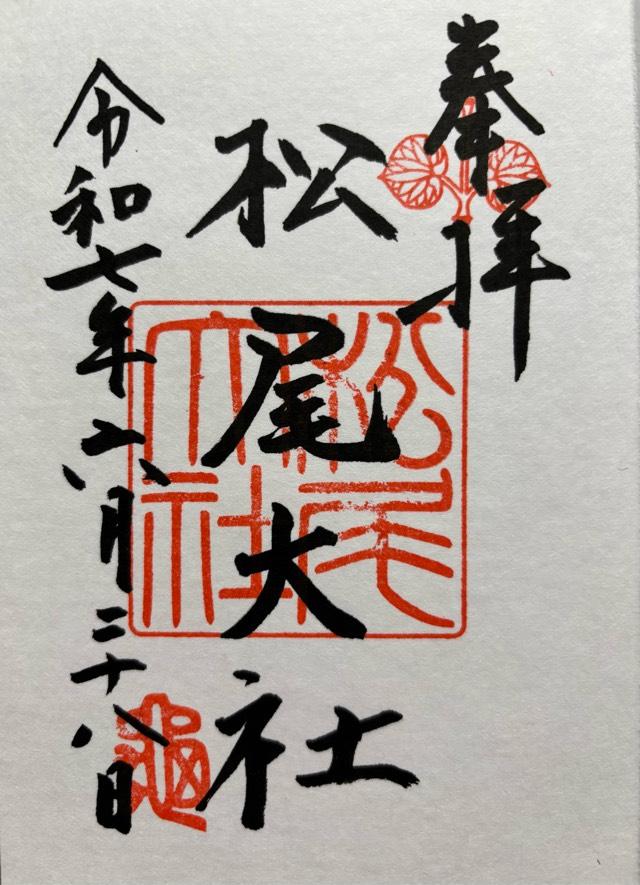 奉拝
松尾大社
松尾大社
令和七年六月二十八日
亀